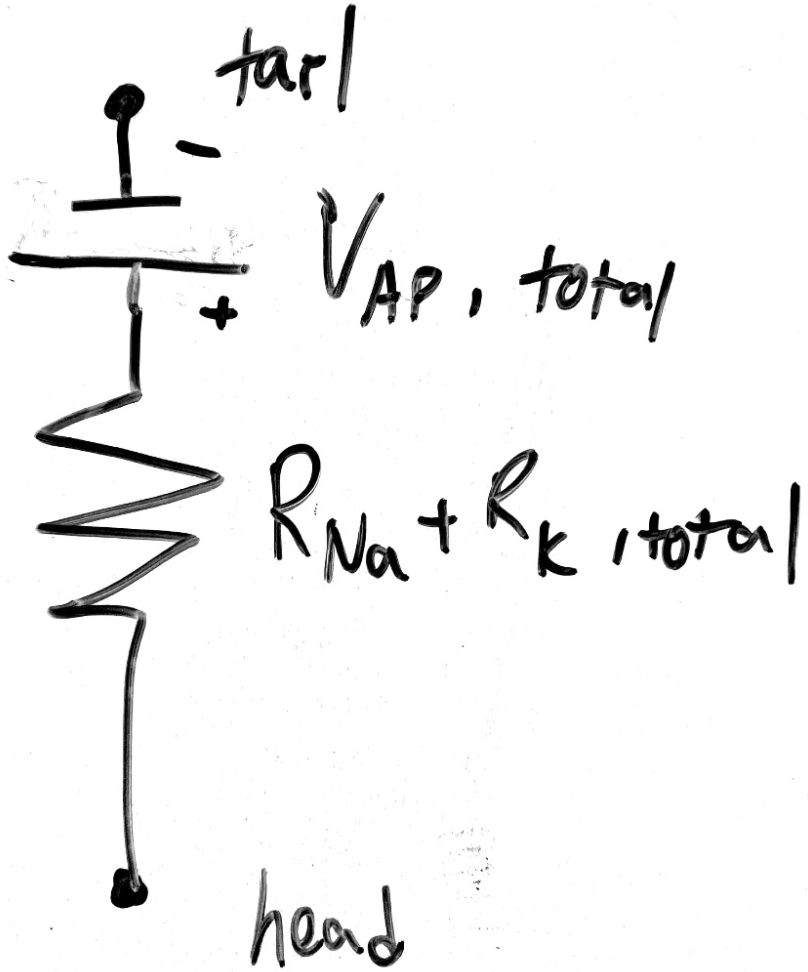 tail
-
V_AP, total
+
R_Na + R_K, total
head